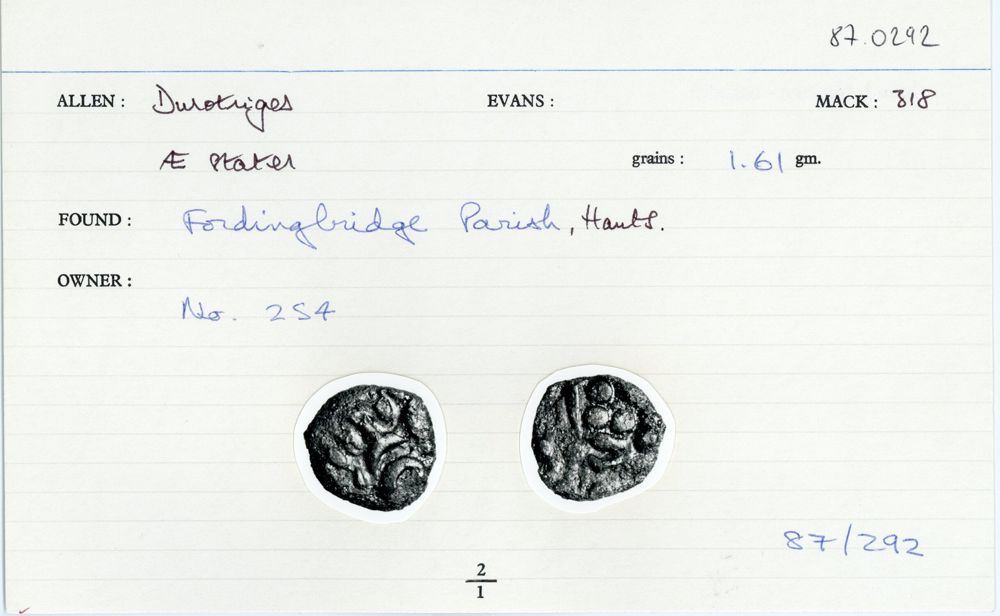 87.0292
ALLEN : Durotriges EVANS : MACK : 318
Æ stater grains : 1.61 gm.
FOUND : Fordingbridge Parish, Hants.
OWNER :
No. 254
87/292
2
1